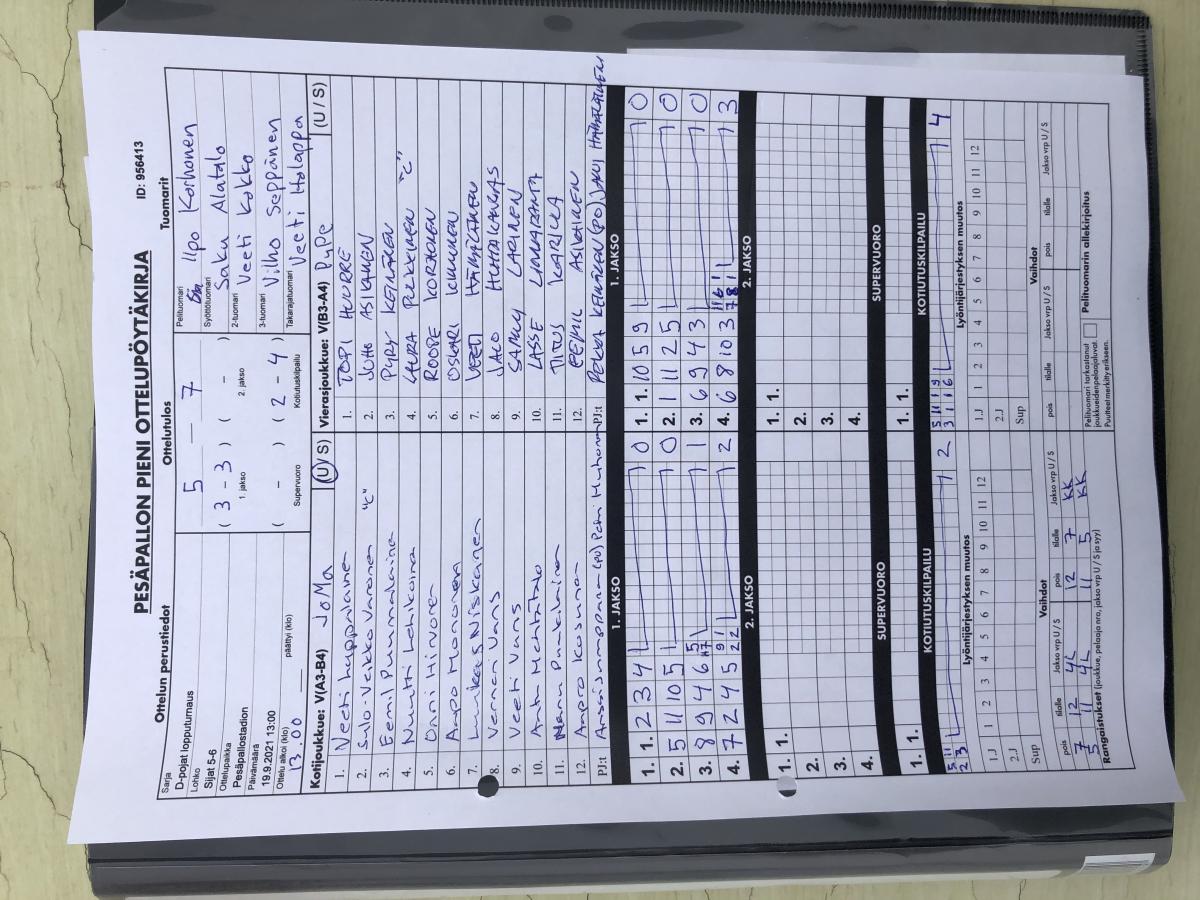 PESÄPALLON PIENI OTTELUPÖYTÄKIRJA
ID: 956413
Ottelun perustiedot
Sarja
D-pojat lopputurnaus
Lohko
Sijat 5-6
Ottelupaikka
Pesäpallostadion
Päivämäärä
19.9.2021 13:00
Ottelu alkoi (klo)
päättyi (klo)
13.00
Ottelutulos
5 — 7
( 3 - 3 ) ( - )
1. jakso 2. jakso
( - ) ( 2 - 4 )
Supervuoro Kotiutuskilpailu
Tuomarit
Pelituomari Ilpo Korhonen
Syöttötuomari Saku Alatalo
2-tuomari Veeti Kokko
3-tuomari Vilho Seppänen
Takarajatuomari Veeti Holappa
Kotijoukkue: V(A3-B4) JoMa (U / S)
1. Veeti
2. Salo-Veikko Varonen "C"
3. Eemil
4. Nuutti Lehikoinen
5. Onni Hirvonen
6. Aapo Mononen
7. Luukas Niskanen
8. Verneri Varis
9. Veeti Varis
10.
11.
12. Aapro Kosunen
PJ:t Petri Muhonen
Vierasjoukkue: V(B3-A4) PyPe (U / S)
1. TOPI
2. JUHO ASIKAINEN
3. PYRY KEINÄNEN
4. LAURA PULKKINEN "C"
5. ROOPE KORHONEN
6. OSKARI KINNUNEN
7. VEETI HÄMÄLÄINEN
8. JACO HUHTAKANGAS
9. SAMU LAPINEN
10. LASSE LINNARANTA
11. TIITUS KARILA
12. EEMIL ASIKAINEN
PJ:t PEKKA KEINÄNEN (PJ), JANI HÄMÄLÄINEN
1. JAKSO
1. 1. 2 3 4 0
2. 5 11 10 5 0
3. 8 9 4 6 1
4. 7 2 4 5 2
1. JAKSO
1. 1. 10 5 9 0
2. 1 11 2 5 0
3. 6 9 4 3 0
4. 6 8 10 3 3
2. JAKSO
1. 1.
2.
3.
4.
2. JAKSO
1. 1.
2.
3.
4.
SUPERVUORO
1. 1.
SUPERVUORO
1. 1.
KOTIUTUSKILPAILU
5 11
2 3 2
KOTIUTUSKILPAILU
5 11 1 9
3 1 1 6 4
Lyöntijärjestyksen muutos
1.J 1 2 3 4 5 6 7 8 9 10 11 12
2.J
Sup
Lyöntijärjestyksen muutos
1.J 1 2 3 4 5 6 7 8 9 10 11 12
2.J
Sup
Vaihdot
pois tilalle Jakso vrp U / S pois tilalle Jakso vrp U / S
7 12 4L 12 7 KK
5 11 4L 11 5 KK
Vaihdot
pois tilalle Jakso vrp U / S pois tilalle Jakso vrp U / S
Rangaistukset (joukkue, pelaaja nro, jakso vrp U / S ja syy)
Pelituomari tarkastanut
joukkueidenpelaajaluvat.
Puutteet merkitty erikseen.
Pelituomarin allekirjoitus